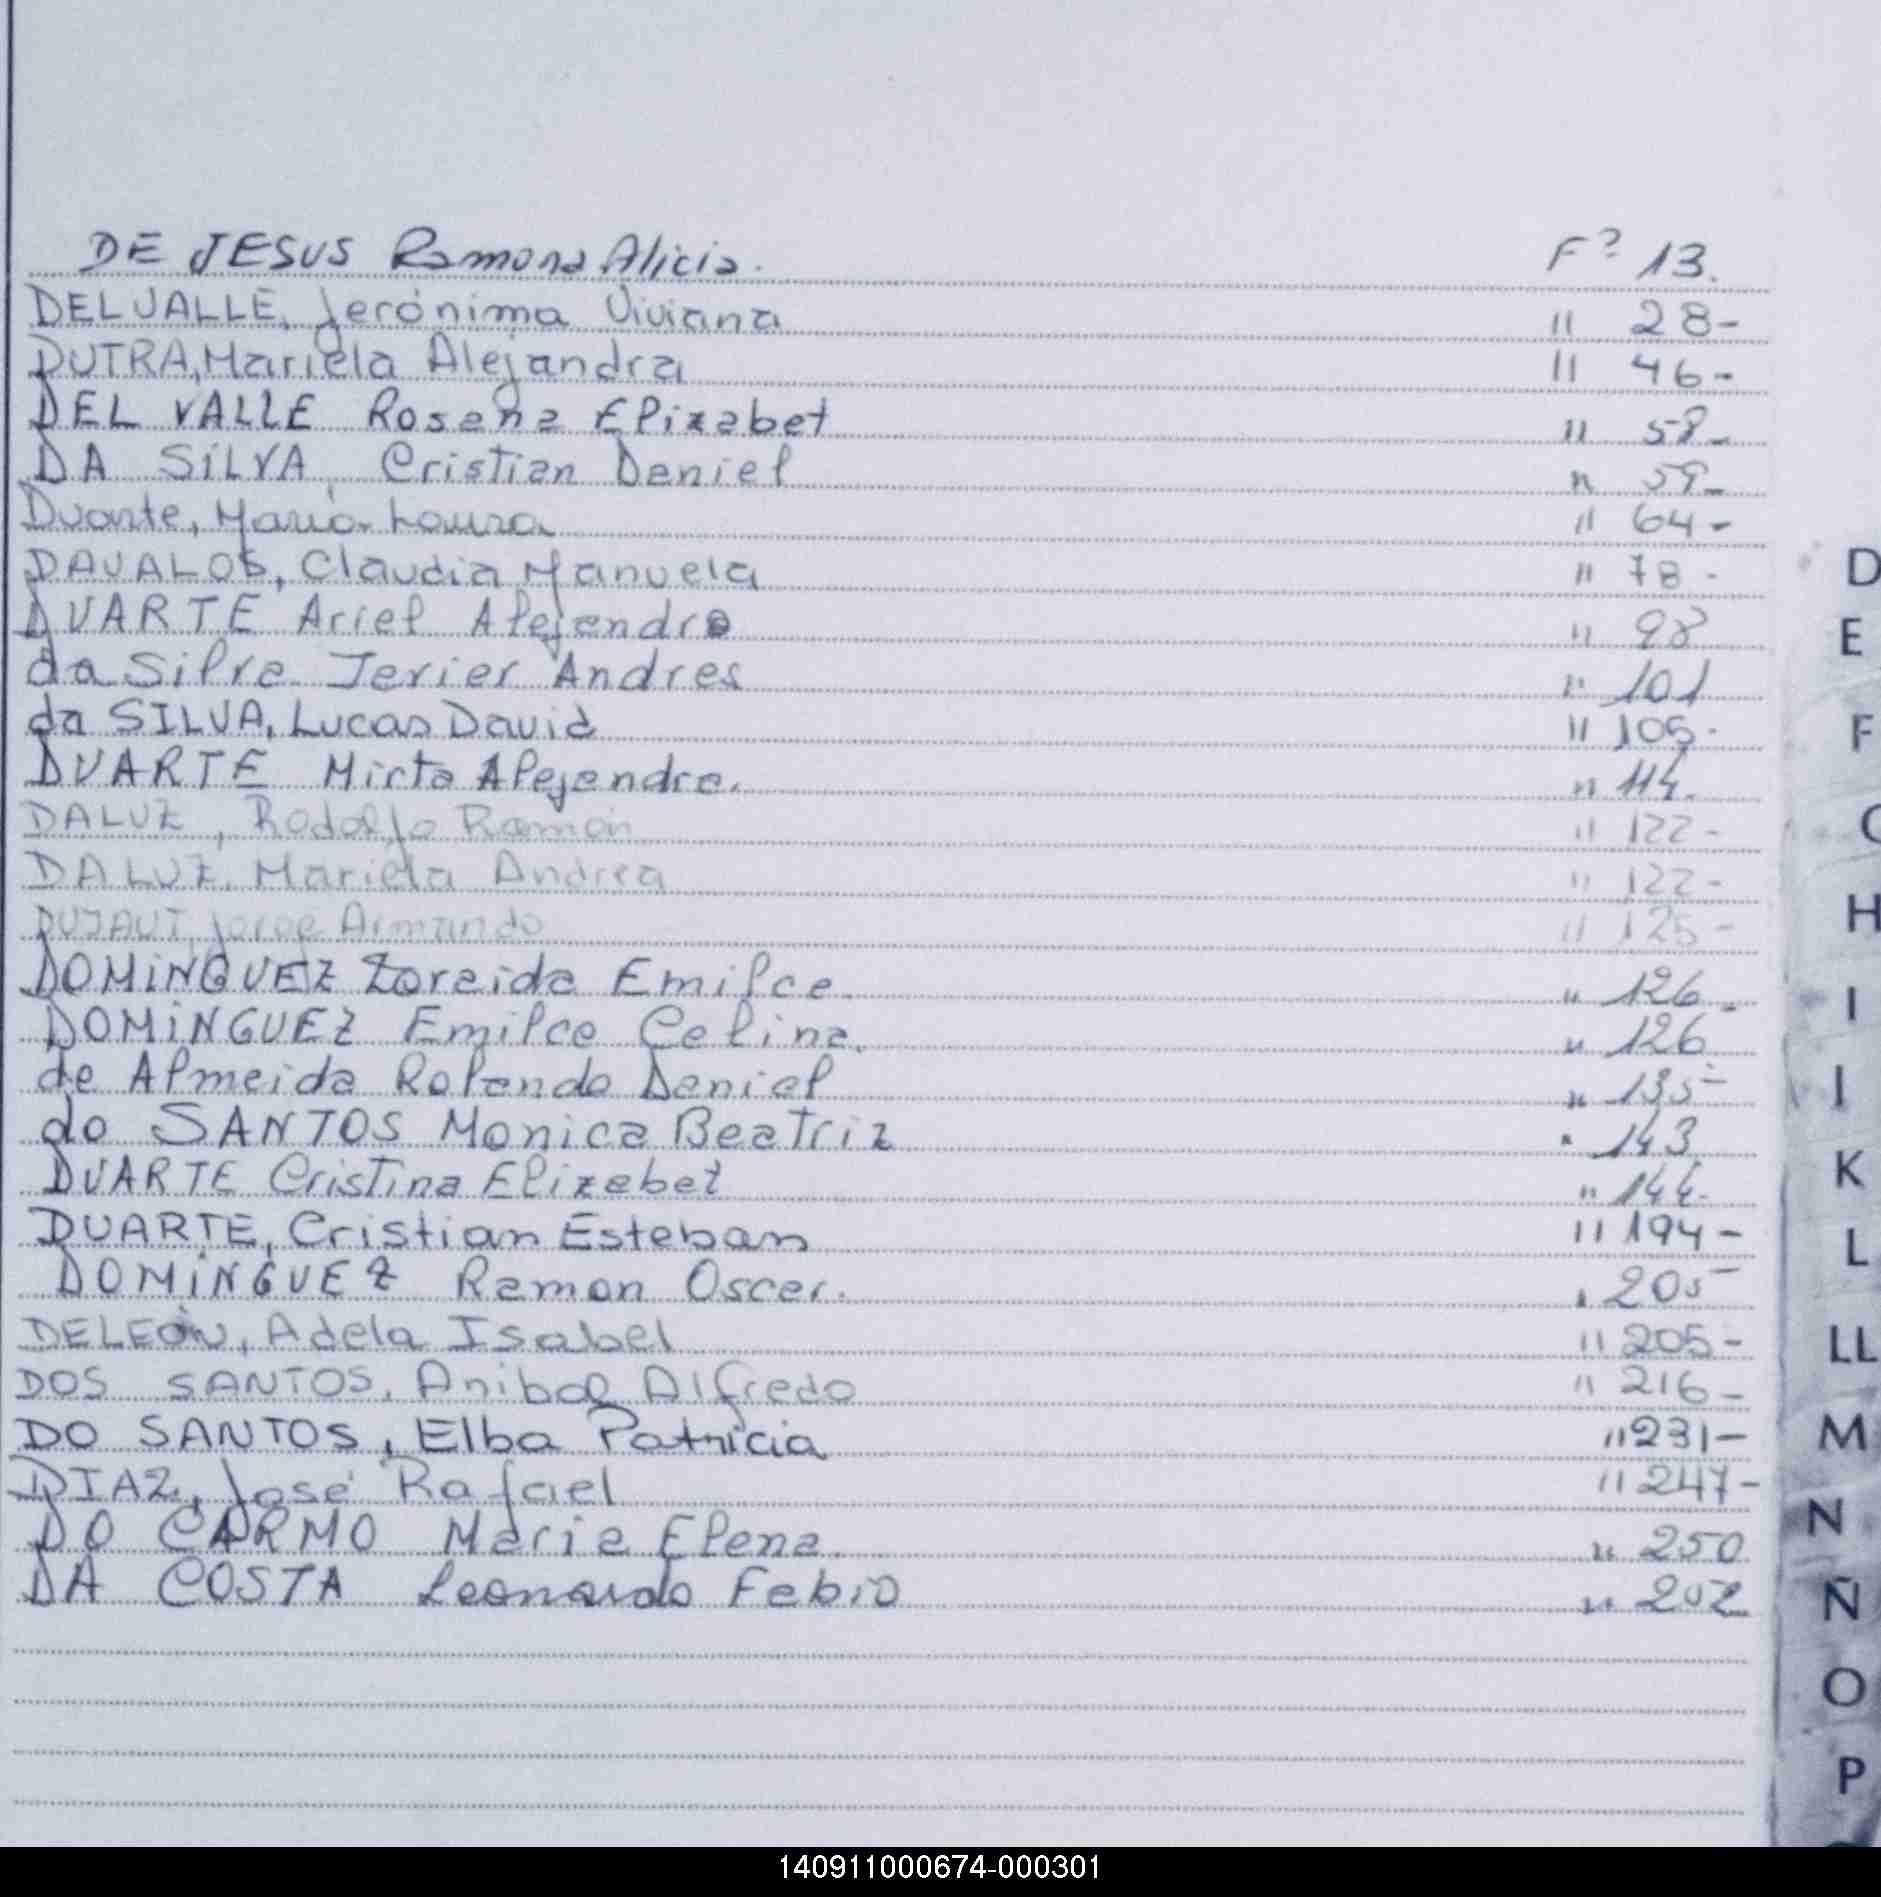 DE JESUS Ramona Alicia. Fº 13.
DELVALLE, Jerónima Viviana " 28-
DUTRA, Mariela Alejandra " 46-
DEL VALLE Rosana Elizabet " 58-
DA SILVA, Cristian Daniel " 59-
Duarte, María Laura " 64-
DAVALOS, Claudia Manuela " 78-
DUARTE Ariel Alejandro " 98
da Silva Javier Andres " 101
da SILVA, Lucas David " 105-
DUARTE Mirta Alejandra. " 114.
DALUZ, Rodolfo Ramón " 122-
DALUZ, Mariela Andrea " 122-
DUJAUT, Jorge Armando " 125-
DOMINGUEZ Zoraida Emilce " 126-
DOMINGUEZ Emilce Celina. " 126
de Almeida Rolando Daniel " 135-
do SANTOS Monica Beatriz " 143
DUARTE Cristina Elizabet " 144.
DUARTE, Cristian Esteban " 194-
DOMINGUEZ Ramon Oscar. " 205-
DELEON, Adela Isabel " 205-
DOS SANTOS, Anibal Alfredo " 216-
DO SANTOS, Elba Patricia " 231-
DIAZ, José Rafael " 247-
DO CARMO Maria Elena. " 250
DA COSTA Leonardo Fabio " 202
D
E
F
G
H
I
J
K
L
LL
M
N
Ñ
O
P
140911000674-000301